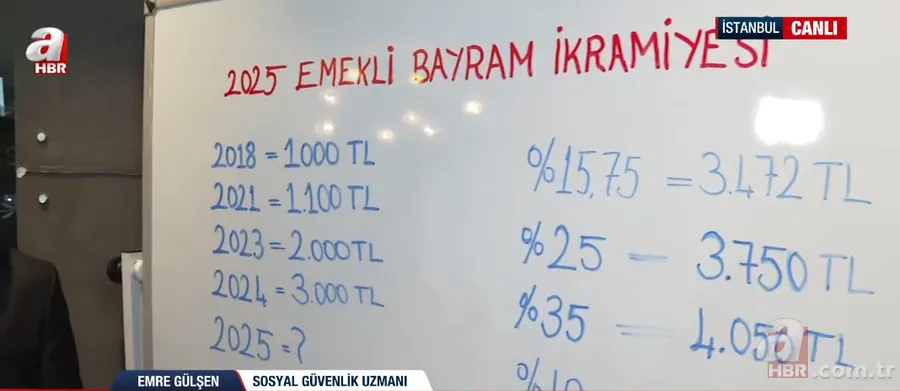 a
HBR
İSTANBUL CANLI
2025 EMEKLİ BAYRAM İKRAMİYESİ
2018 = 1000 TL
2021 = 1.100 TL
2023 = 2.000 TL
2024 = 3.000 TL
2025 = ?
%15,75 = 3.472 TL
%25 = 3.750 TL
%35 = 4.050 TL
EMRE GÜLŞEN SOSYAL GÜVENLİK UZMANI
a
HBR.com.tr